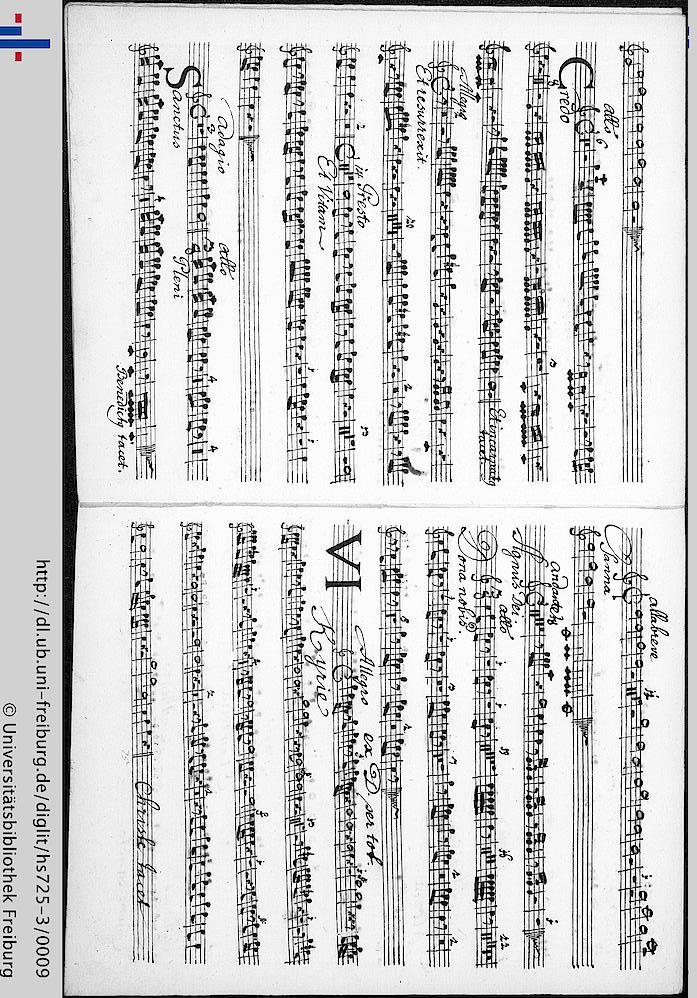 Credo
allo
Et incarnatus
tacet.
Allegro
Et resurrexit.
Presto
Et Vitam
Adagio
Sanctus
allo
Pleni
Benedictus tacet.
allabreve
Osanna
andante
Agnus Dei
allo
Dona nobis
VI
Allegro ex D. per tot.
Kyrie
Christe tacet
http://dl.ub.uni-freiburg.de/diglit/hs725-3/0009
© Universitätsbibliothek Freiburg